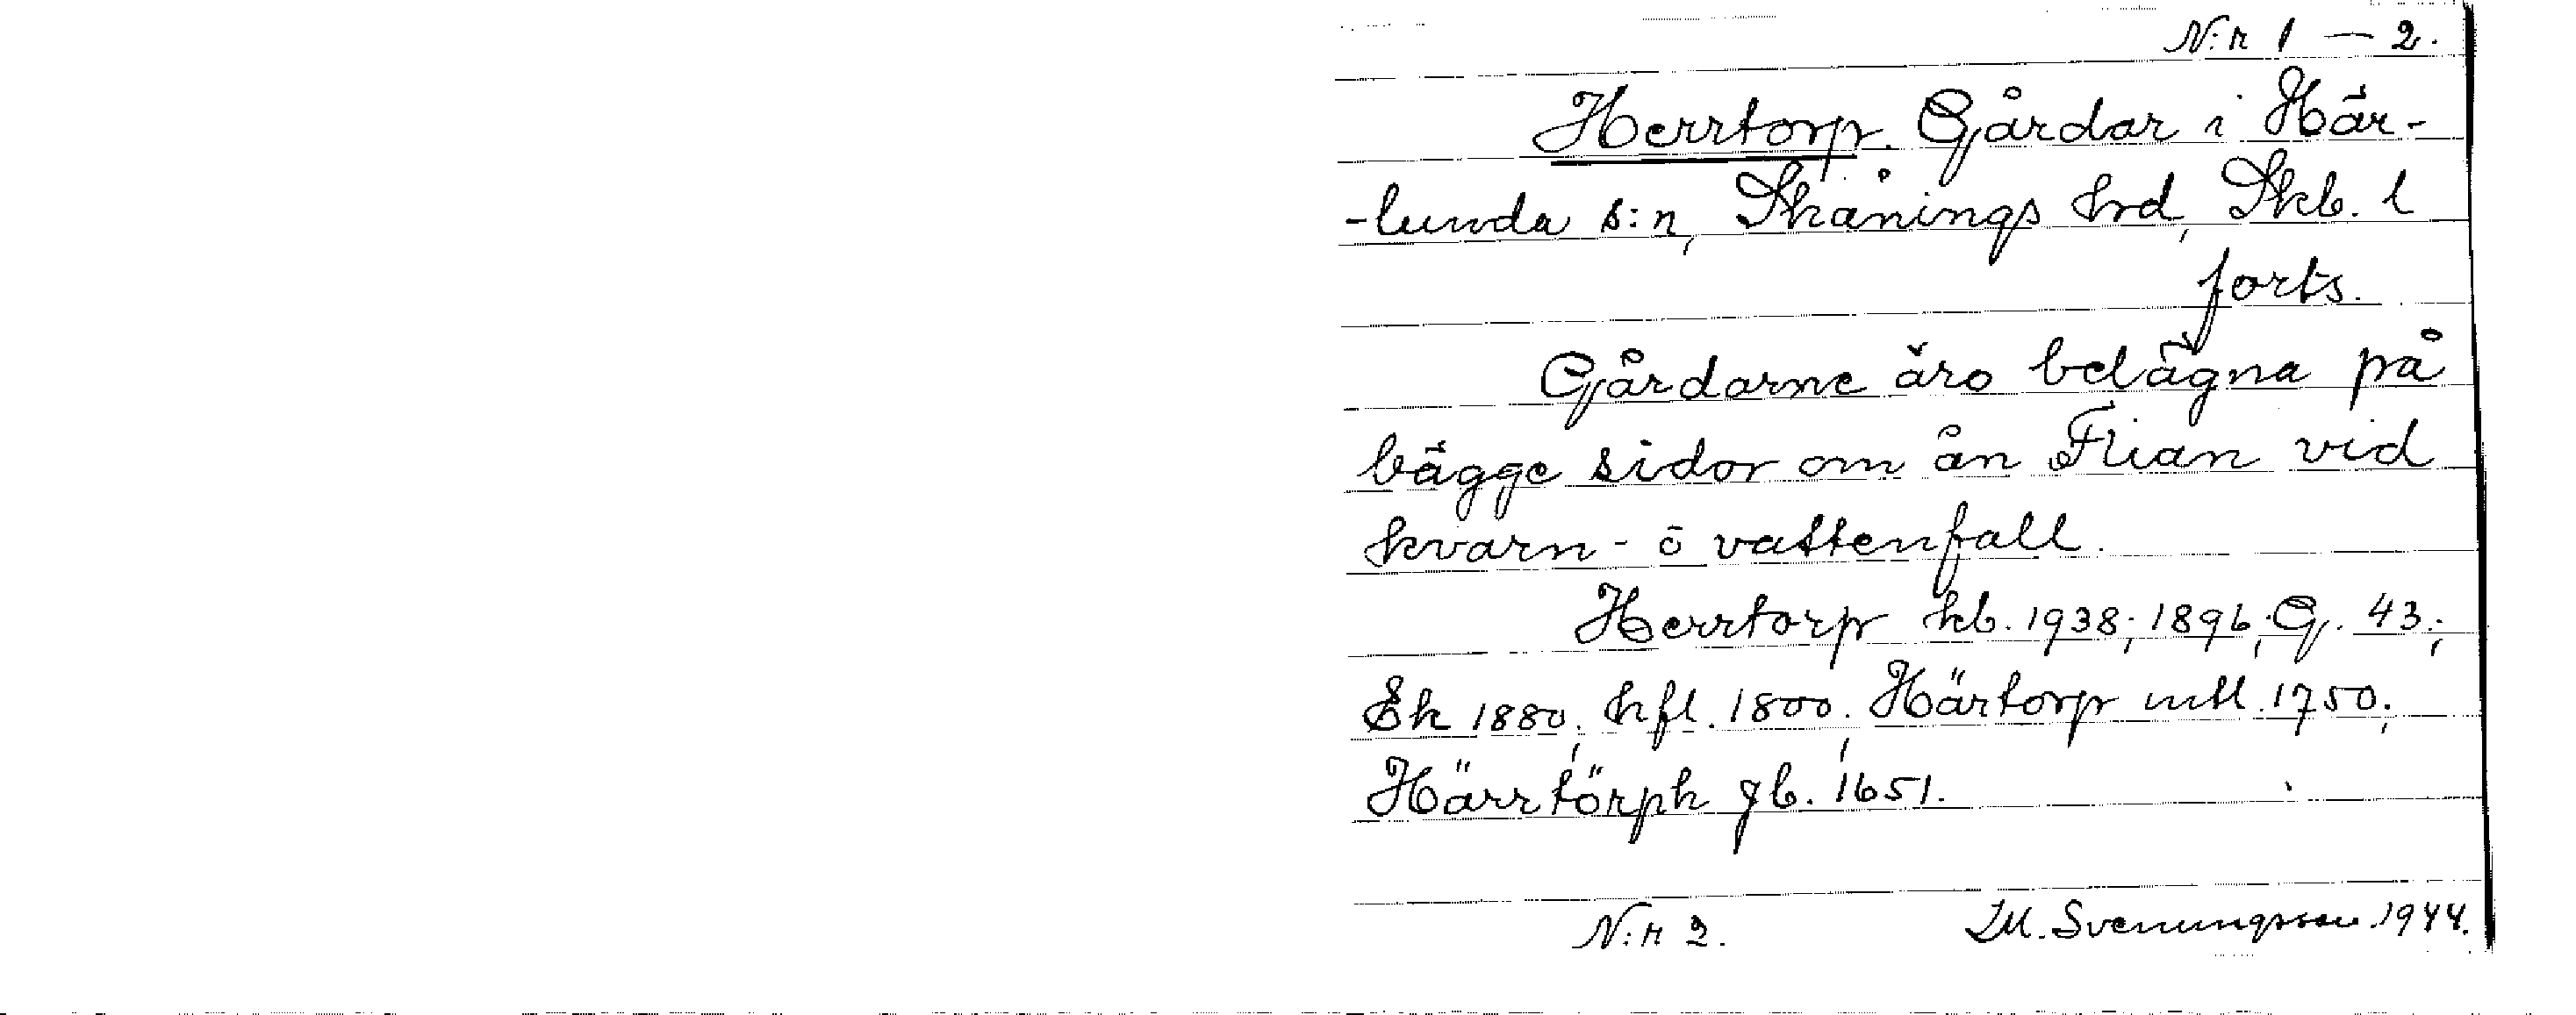 N:r 1 — 2.
Herrtorp. Gårdar i Här-
-lunda s:n, Skånings hrd, Skb. l
forts.
Gårdarne äro belägna på
bägge sidor om ån Flian vid
kvarn- o vattenfall.
Herrtorp kb. 1938; 1896; G. 43;
Ek 1880; hfl. 1800; Härtorp mtl. 1750;
Härrtörph jb. 1651.
N:r 2. M. Svenungsson. 1944.